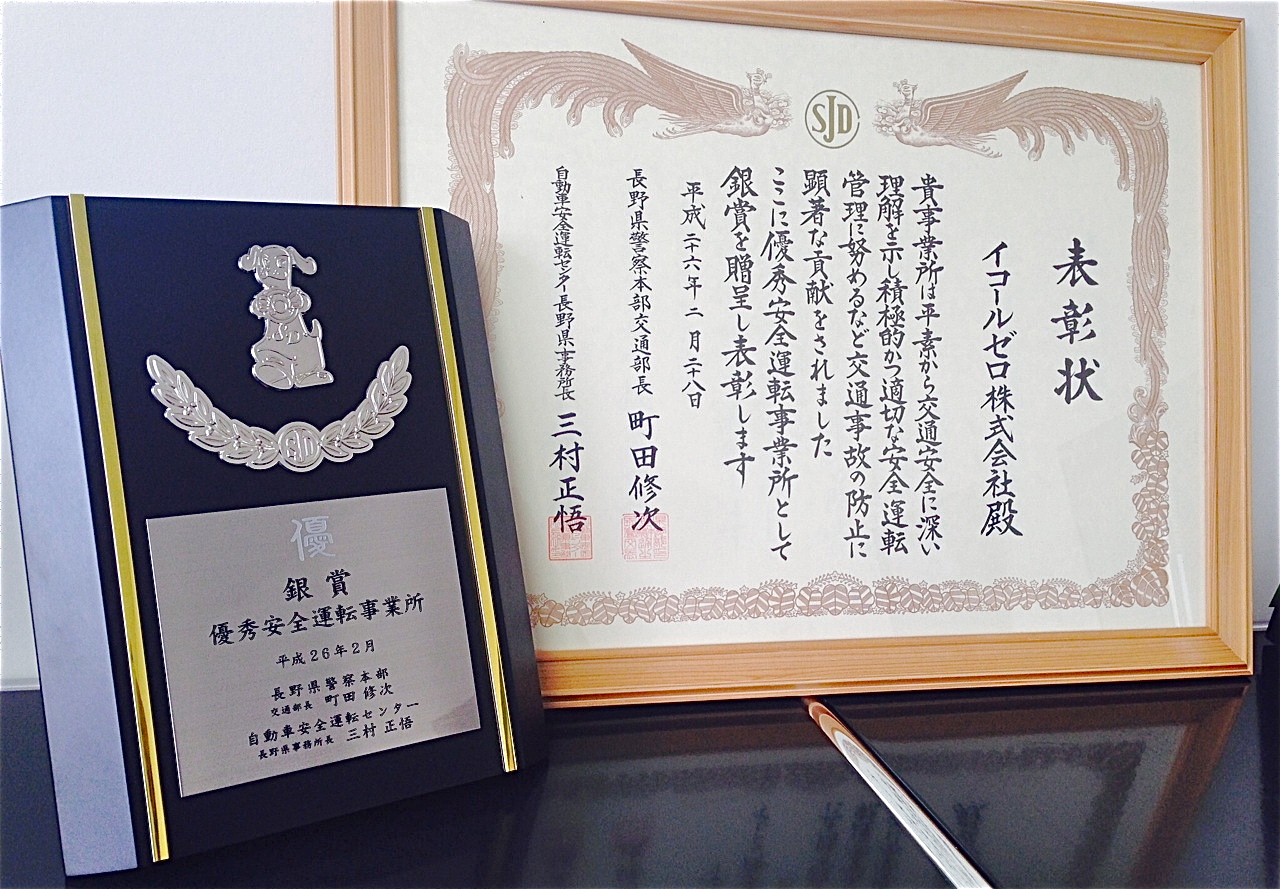 SJD
表彰状
イコールゼロ株式会社殿
貴事業所は平素から交通安全に深い
理解を示し積極的かつ適切な安全運転
管理に努めるなど交通事故の防止に
顕著な貢献をされました
ここに優秀安全運転事業所として
銀賞を贈呈し表彰します
平成二十六年二月二十八日
長野県警察本部交通部長 町田修次
自動車安全運転センター長野県事務所長 三村正悟
SJD
優
銀賞
優秀安全運転事業所
平成26年2月
長野県警察本部
交通部長 町田 修次
自動車安全運転センター
長野県事務所長 三村 正悟